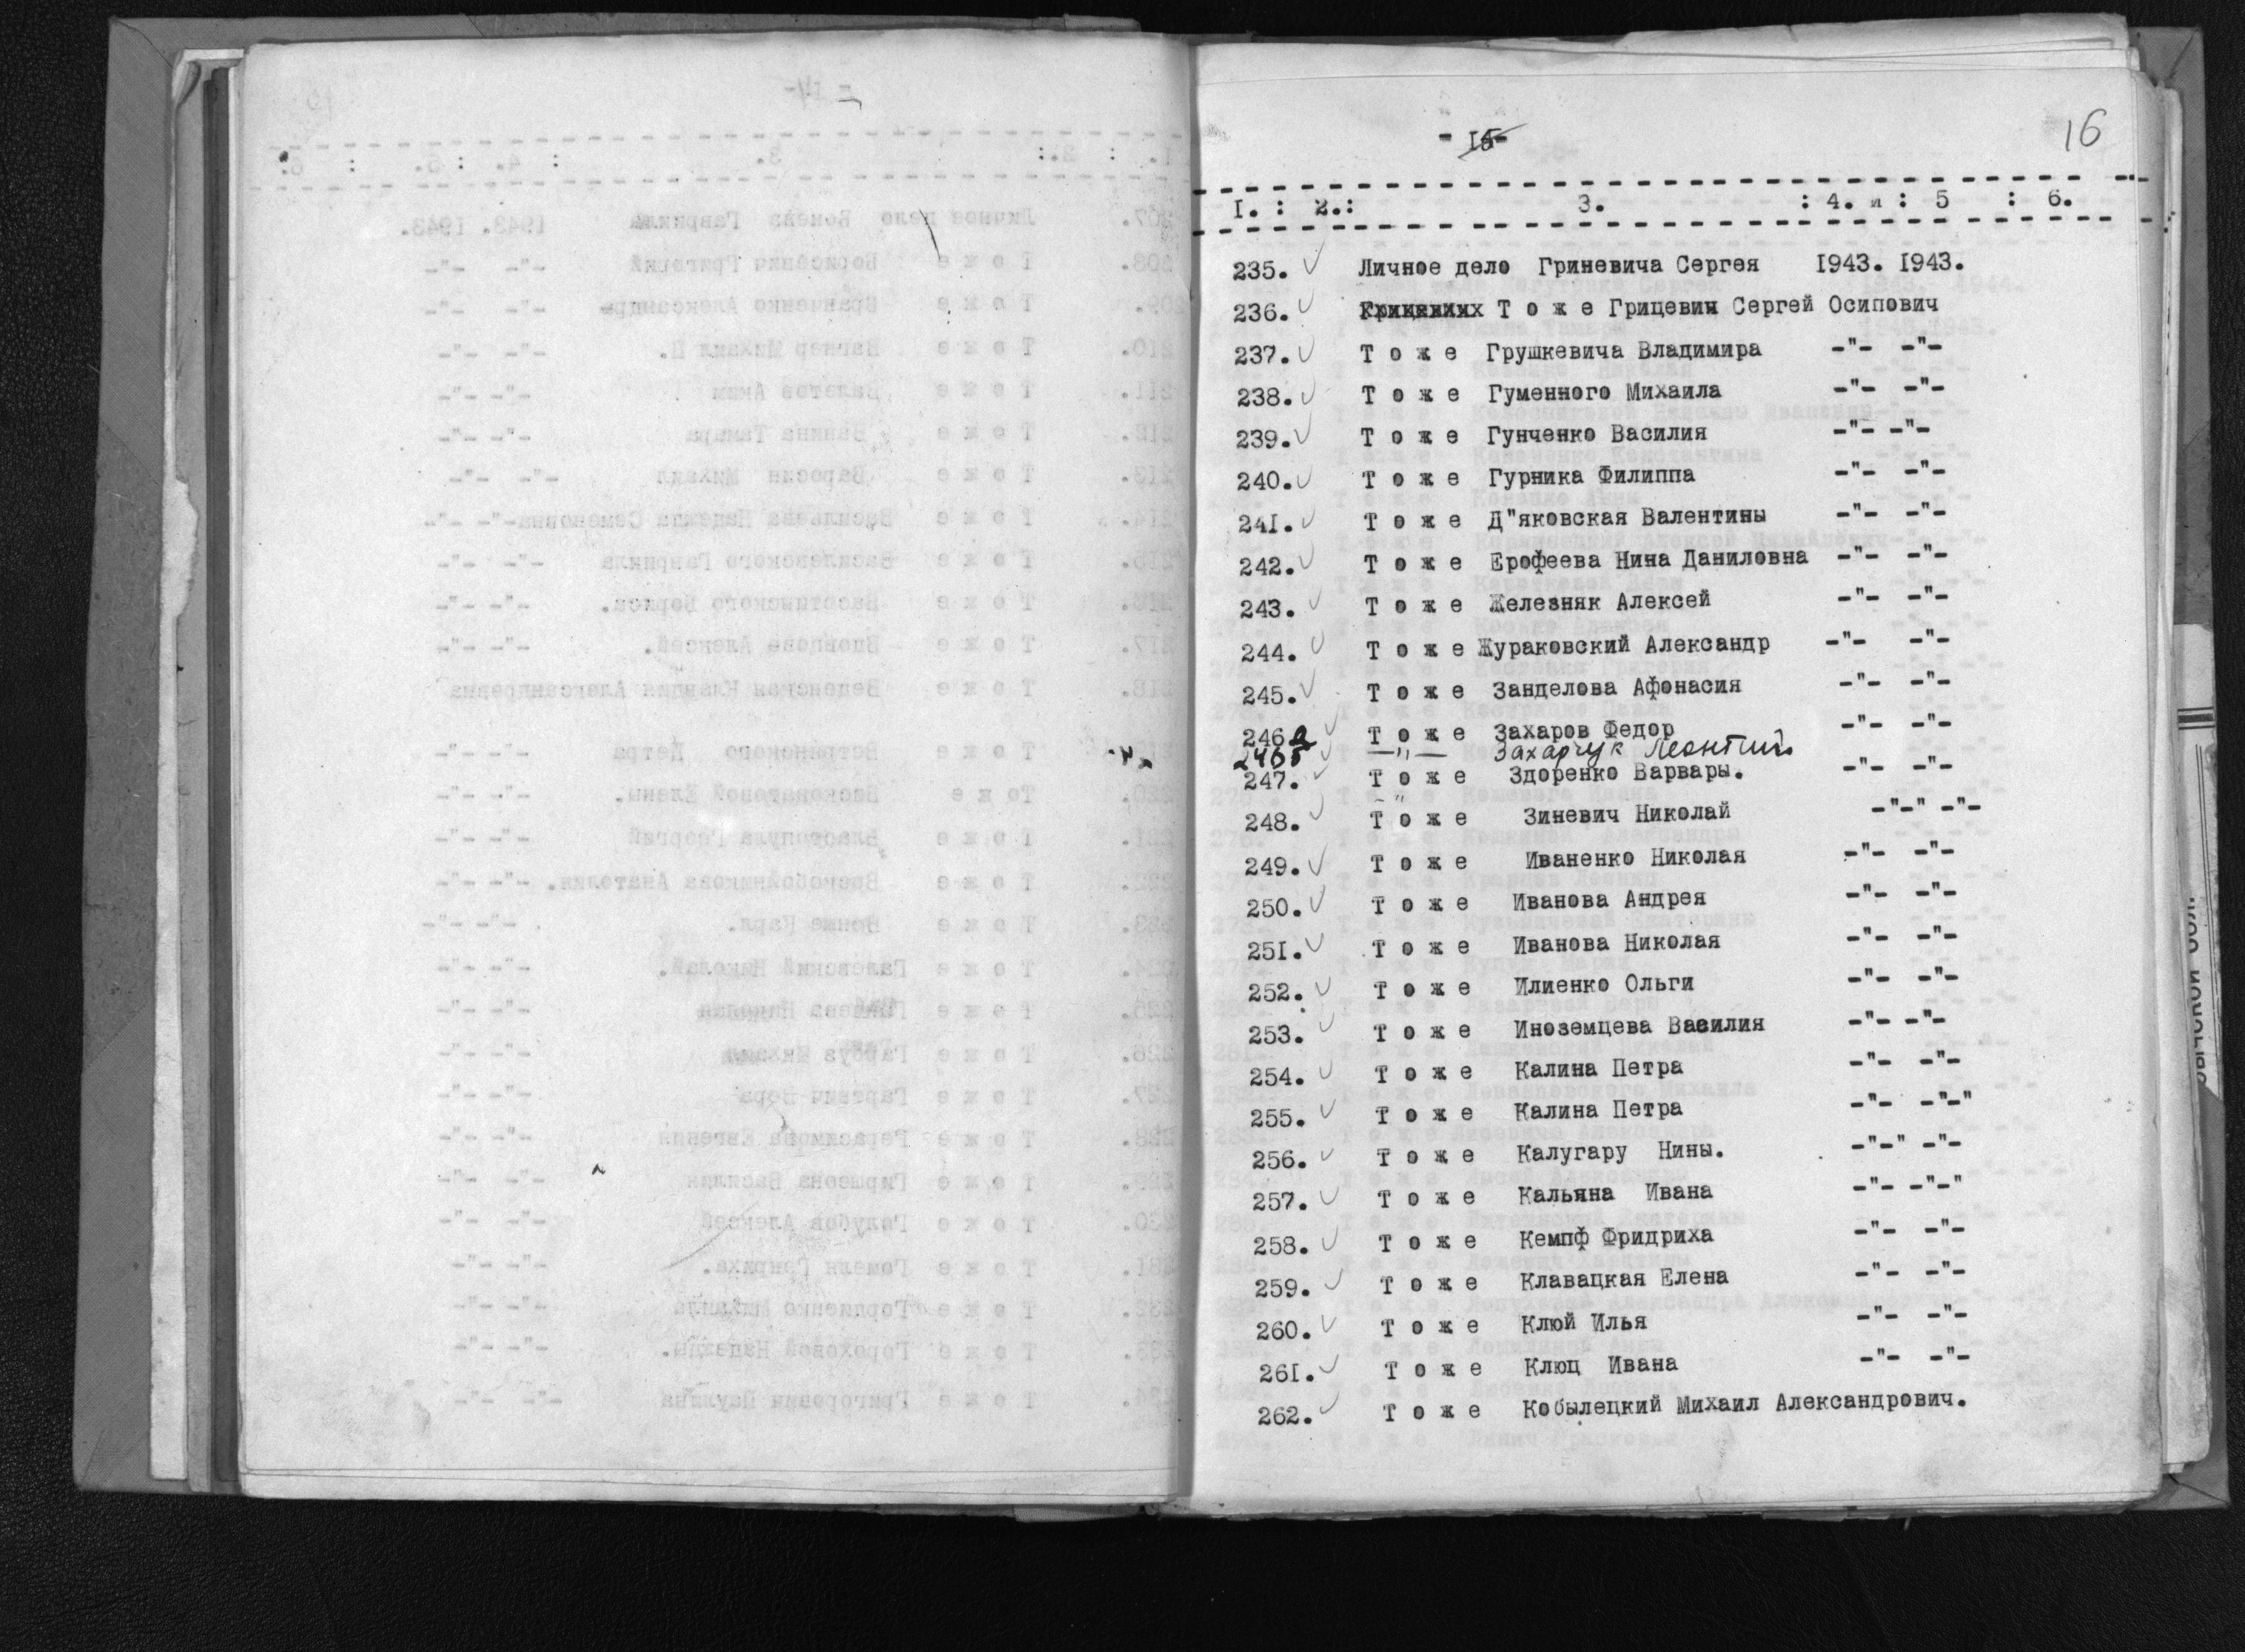 - 15 -
16
I. : 2.: 3. : 4. и : 5 : 6.
235. Личное дело Гриневича Сергея 1943. 1943.
236. Т о ж е Грицевич Сергей Осипович
237. Т о ж е Грушкевича Владимира -"- -"-
238. Т о ж е Гуменного Михаила -"- -"-
239. Т о ж е Гунченко Василия -"- -"-
240. Т о ж е Гурника Филиппа -"- -"-
24I. Т о ж е Д"яковская Валентины -"- -"-
242. Т о ж е Ерофеева Нина Даниловна -"- -"-
243. Т о ж е Железняк Алексей -"- -"-
244. Т о ж е Жураковский Александр -"- -"-
245. Т о ж е Занделова Афонасия -"- -"-
246а Т о ж е Захаров Федор -"- -"-
246б -"- Захарчук Леонтий
247. Т о ж е Здоренко Варвары. -"- -"-
248. Т о ж е Зиневич Николай -"-" -"-
249. Т о ж е Иваненко Николая -"- -"-
250. Т о ж е Иванова Андрея -"- -"-
25I. Т о ж е Иванова Николая -"- -"-
252. Т о ж е Илиенко Ольги -"- -"-
253. Т о ж е Иноземцева Василия -"- -"-
254. Т о ж е Калина Петра -"- -"-
255. Т о ж е Калина Петра -"- -"-"
256. Т о ж е Калугару Нины. -"-" -"-
257. Т о ж е Кальяна Ивана -"- -"-"
258. Т о ж е Кемпф Фридриха -"- -"-
259. Т о ж е Клавацкая Елена -"- -"-
260. Т о ж е Клюй Илья -"- -"-
26I. Т о ж е Клюц Ивана -"- -"-
262. Т о ж е Кобылецкий Михаил Александрович.